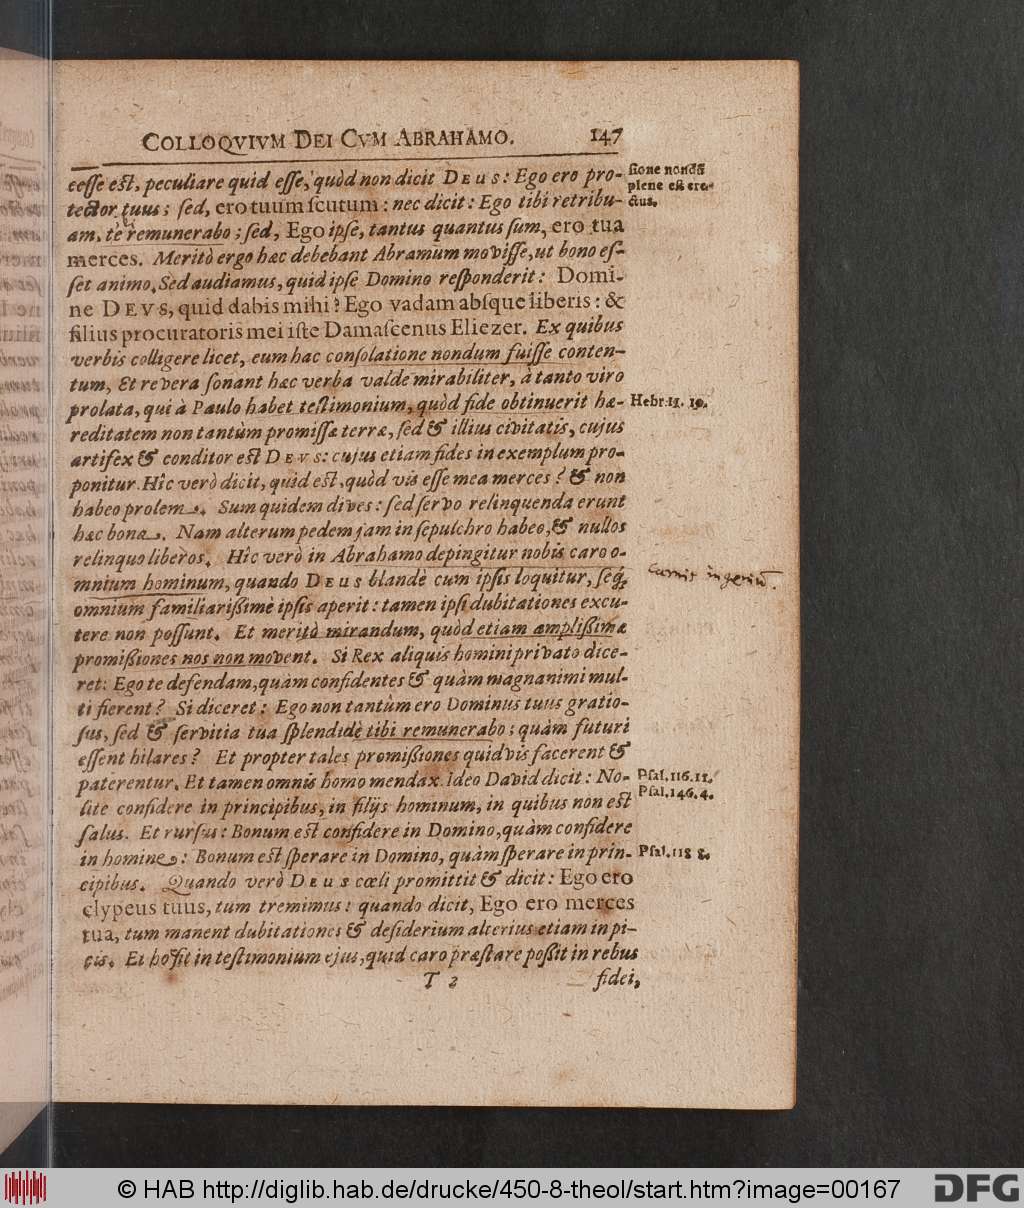 COLLOQVIVM DEI CVM ABRAHAMO. 147
cesse est, peculiare quid esse, quòd non dicit DEUS: Ego ero pro-
tector tuus; sed, ero tuum scutum: nec dicit: Ego tibi retribu-
am, te remunerabo; sed, Ego ipse, tantus quantus sum, ero tua
merces. Meritò ergo hæc debebant Abramum movisse, ut bono es-
set animo. Sed audiamus, quid ipse Domino responderit: Domi-
ne DEVS, quid dabis mihi? Ego vadam absque liberis: &
filius procuratoris mei iste Damascenus Eliezer. Ex quibus
verbis colligere licet, eum hac consolatione nondum fuisse conten-
tum, Et revera sonant hæc verba valde mirabiliter, à tanto viro
prolata, qui à Paulo habet testimonium, quòd fide obtinuerit hæ-
reditatem non tantùm promissæ terræ, sed & illius civitatis, cujus
artifex & conditor est DEVS: cujus etiam fides in exemplum pro-
ponitur. Hîc verò dicit, quid est, quòd vis esse mea merces? & non
habeo prolem. Sum quidem dives: sed servo relinquenda erunt
hæc bona. Nam alterum pedem jam in sepulchro habeo, & nullos
relinquo liberos. Hîc verò in Abrahamo depingitur nobis caro o-
mnium hominum, quando DEUS blandè cum ipsis loquitur, seq́;
omnium familiarißimè ipsis aperit: tamen ipsi dubitationes excu-
tere non possunt. Et meritò mirandum, quòd etiam amplißimæ
promißiones nos non movent. Si Rex aliquis homini privato dice-
ret: Ego te defendam, quàm confidentes & quàm magnanimi mul-
ti fierent? Si diceret: Ego non tantùm ero Dominus tuus gratio-
sus, sed & servitia tua splendidè tibi remunerabo; quàm futuri
essent hilares? Et propter tales promißiones quidvis facerent &
paterentur. Et tamen omnis homo mendax. Ideo David dicit: No-
lite confidere in principibus, in filijs hominum, in quibus non est
salus. Et rursus: Bonum est confidere in Domino, quàm confidere
in homine: Bonum est sperare in Domino, quàm sperare in prin-
cipibus. Quando verò DEUS cœli promittit & dicit: Ego ero
clypeus tuus, tum tremimus: quando dicit, Ego ero merces
tua, tum manent dubitationes & desiderium alterius etiam in pi-
is. Et hoc sit in testimonium ejus, quid caro præstare poßit in rebus
T 2 fidei,
sione nondũ
plene est ere-
ctus.
Hebr. 11. 10.
Carnis ingeniũ.
Psal. 116. 11.
Psal. 146. 4.
Psal. 118 8.
© HAB http://diglib.hab.de/drucke/450-8-theol/start.htm?image=00167
DFG